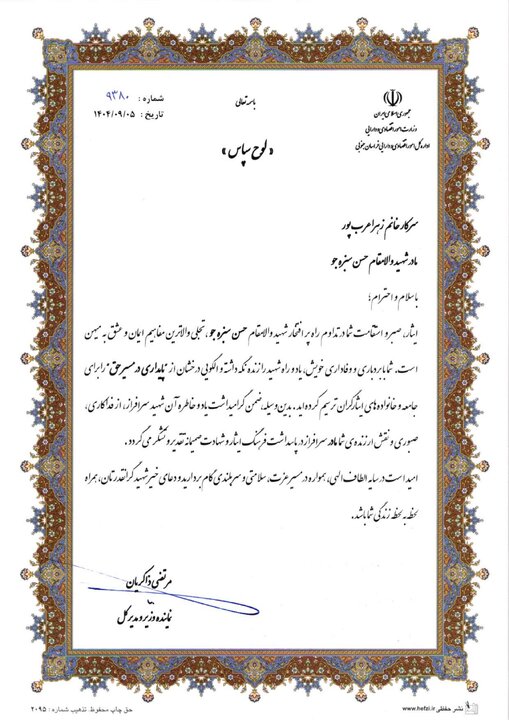 باسمه تعالی
جمهوری اسلامی ایران
وزارت امور اقتصادی و دارایی
اداره کل امور اقتصادی و دارایی خراسان جنوبی
شماره : ۹۳۸۰
تاریخ : ۱۴۰۴/۰۹/۰۵
« لوح سپاس »
سرکار خانم زهرا عرب پور
مادر شهید والامقام حسن سبزه جو
با سلام و احترام؛
ایثار، صبر و استقامت شما در تداوم راه پر افتخار شهید والامقام حسن سبزه جو، تجلی والاترین مفاهیم ایمان و عشق به میهن
است. شما با بردباری و وفاداری خویش، یاد و راه شهید را زنده نگه داشته و الگویی درخشان از "پایداری در مسیر حق" را برای
جامعه و خانواده های ایثارگران ترسیم کرده اید. بدین وسیله، ضمن گرامیداشت یاد و خاطره آن شهید سرافراز، از فداکاری،
صبوری و نقش ارزنده ی شما مادر سرافراز در پاسداشت فرهنگ ایثار و شهادت صمیمانه تقدیر و تشکر می گردد.
امید است در سایه الطاف الهی، همواره در مسیر عزت، سلامتی و سربلندی گام بردارید و دعای خیر شهید گرانقدرتان، همراه
لحظه به لحظه زندگی شما باشد.
مرتضی ذاکریان
نماینده وزیر و مدیر کل
نشر حفظی www.hefzi.ir
حق چاپ محفوظ. تذهیب شماره : ۲۰۹۵